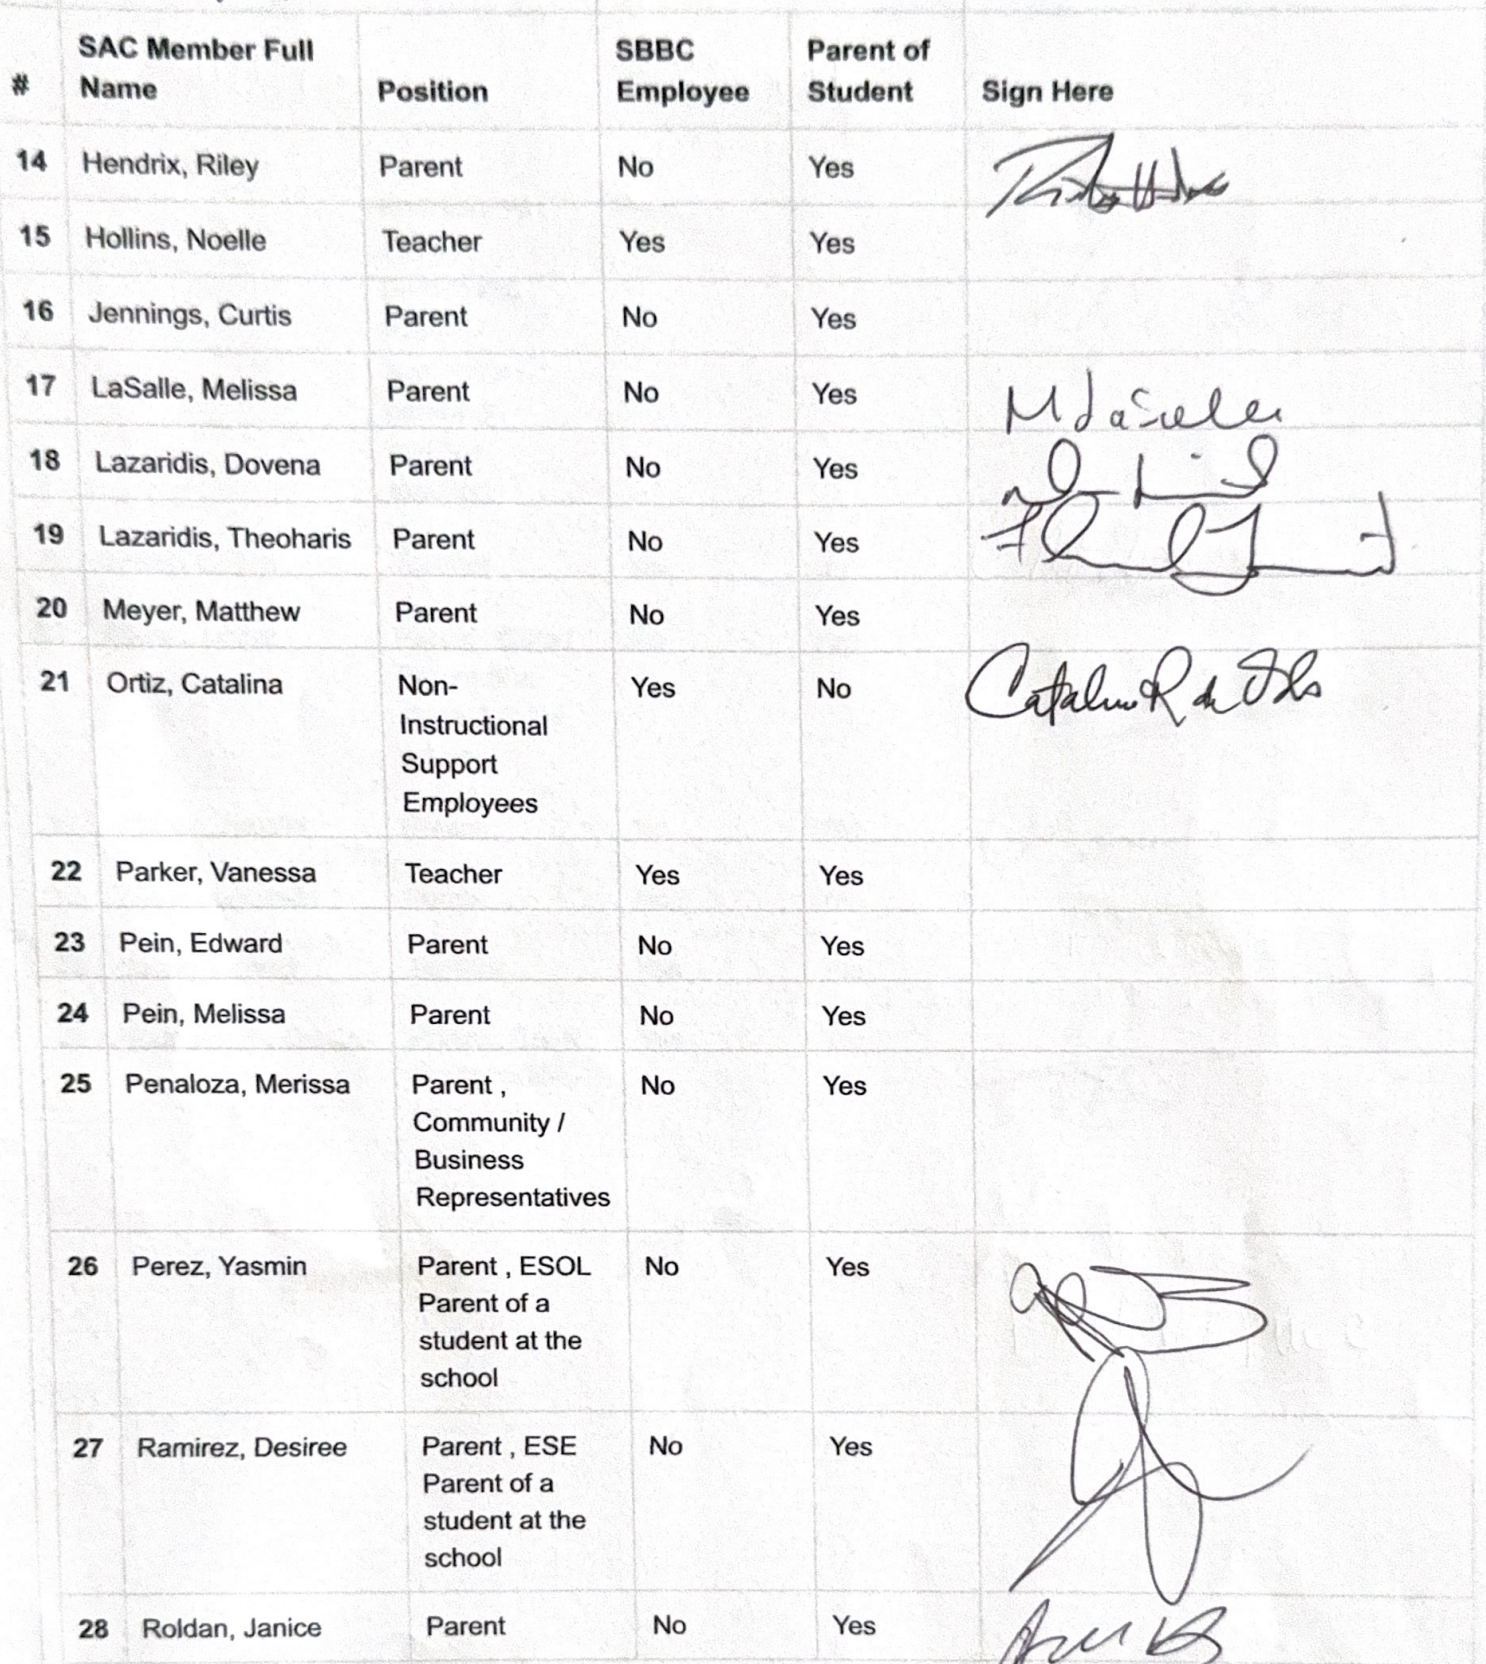 # SAC Member Full Name Position SBBC Employee Parent of Student Sign Here
14 Hendrix, Riley Parent No Yes
15 Hollins, Noelle Teacher Yes Yes
16 Jennings, Curtis Parent No Yes
17 LaSalle, Melissa Parent No Yes
18 Lazaridis, Dovena Parent No Yes
19 Lazaridis, Theoharis Parent No Yes
20 Meyer, Matthew Parent No Yes
21 Ortiz, Catalina Non- Yes No Catalina R de
Instructional
Support
Employees
22 Parker, Vanessa Teacher Yes Yes
23 Pein, Edward Parent No Yes
24 Pein, Melissa Parent No Yes
25 Penaloza, Merissa Parent , No Yes
Community /
Business
Representatives
26 Perez, Yasmin Parent , ESOL No Yes
Parent of a
student at the
school
27 Ramirez, Desiree Parent , ESE No Yes
Parent of a
student at the
school
28 Roldan, Janice Parent No Yes